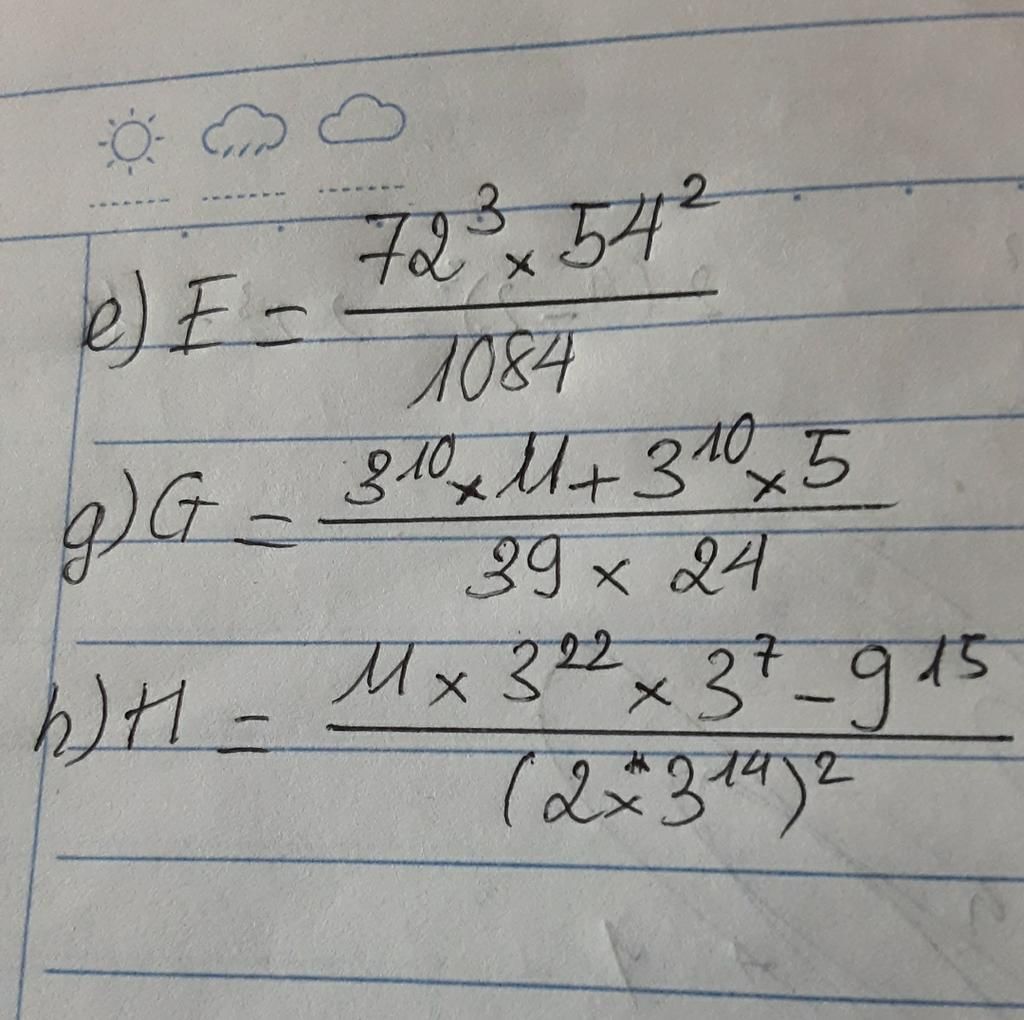 e) E = 72³ × 54² / 1084
g) G = 3¹⁰ × 11 + 3¹⁰ × 5 / 39 × 24
h) H = 11 × 3²² × 3⁷ - 9¹⁵ / (2 × 3¹⁴)²